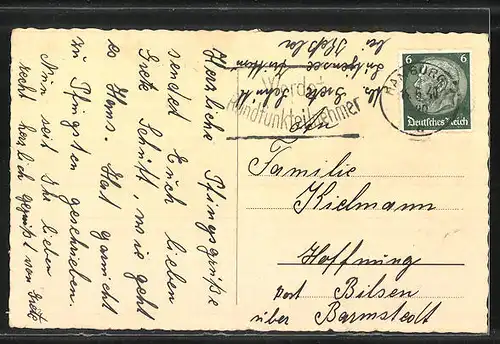 Herzliche Pfingsgrüße
sendet Euch lieben
Grete Schütt, wie geht
es Hans. Hat garnicht
zu Pfingsten geschrieben
Nun seit Ihr lieben
recht herzlich gegrüßt von Grete
Grete Schütt
bei Kessler
Werde
Rundfunkteilnehmer
HAMBURG
6 6
Deutsches Reich
An
Familie
Kielmann
Hoffnung
post Bilsen
über Barmstedt